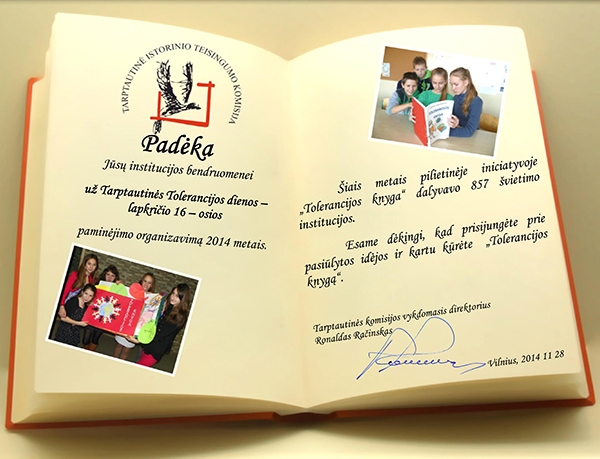 TARPTAUTINĖ ISTORINIO TEISINGUMO KOMISIJA
Padėka
Jūsų institucijos bendruomenei
už Tarptautinės Tolerancijos dienos –
lapkričio 16 – osios
paminėjimo organizavimą 2014 metais.
Šiais metais pilietinėje iniciatyvoje
„Tolerancijos knyga“ dalyvavo 857 švietimo
institucijos.
Esame dėkingi, kad prisijungėte prie
pasiūlytos idėjos ir kartu kūrėte „Tolerancijos
knygą“.
Tarptautinės komisijos vykdomasis direktorius
Ronaldas Račinskas
Vilnius, 2014 11 28